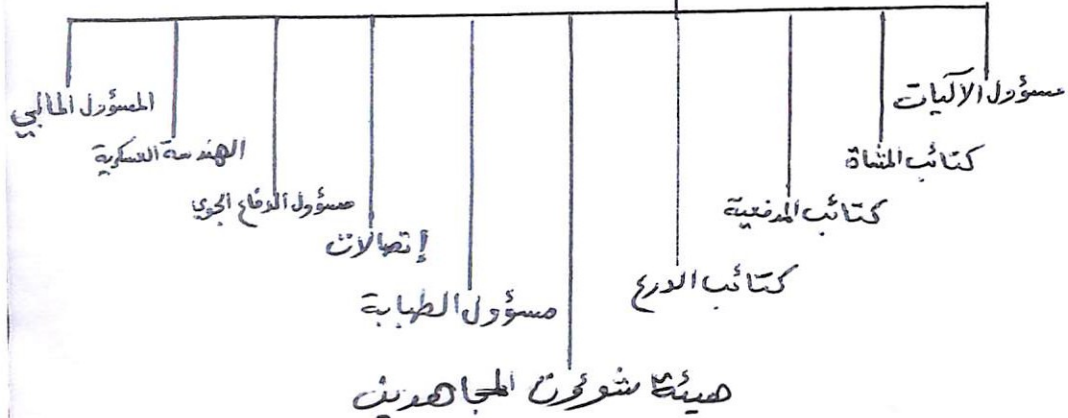 مسؤول الآليات
كتائب المشاة
كتائب المدفعية
كتائب الدرع
هيئة شوؤن المجاهدين
مسؤول الطبابة
إتصالات
مسؤول الدفاع الجوي
الهندسة العسكرية
المسؤول المالي